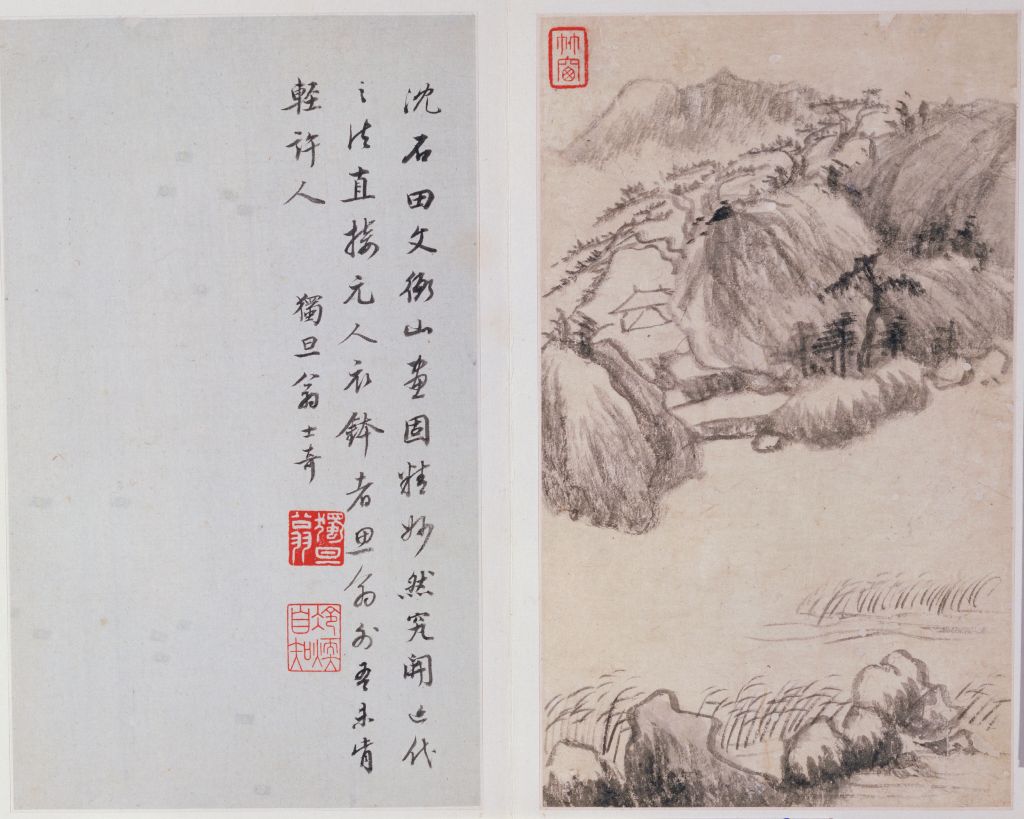 竹窗
沈石田文衡山畫固精妙然究開近代
之法直接元人衣鉢者思翁外吾未肯
輕許人
獨旦翁士奇
獨旦翁
冷煖自知